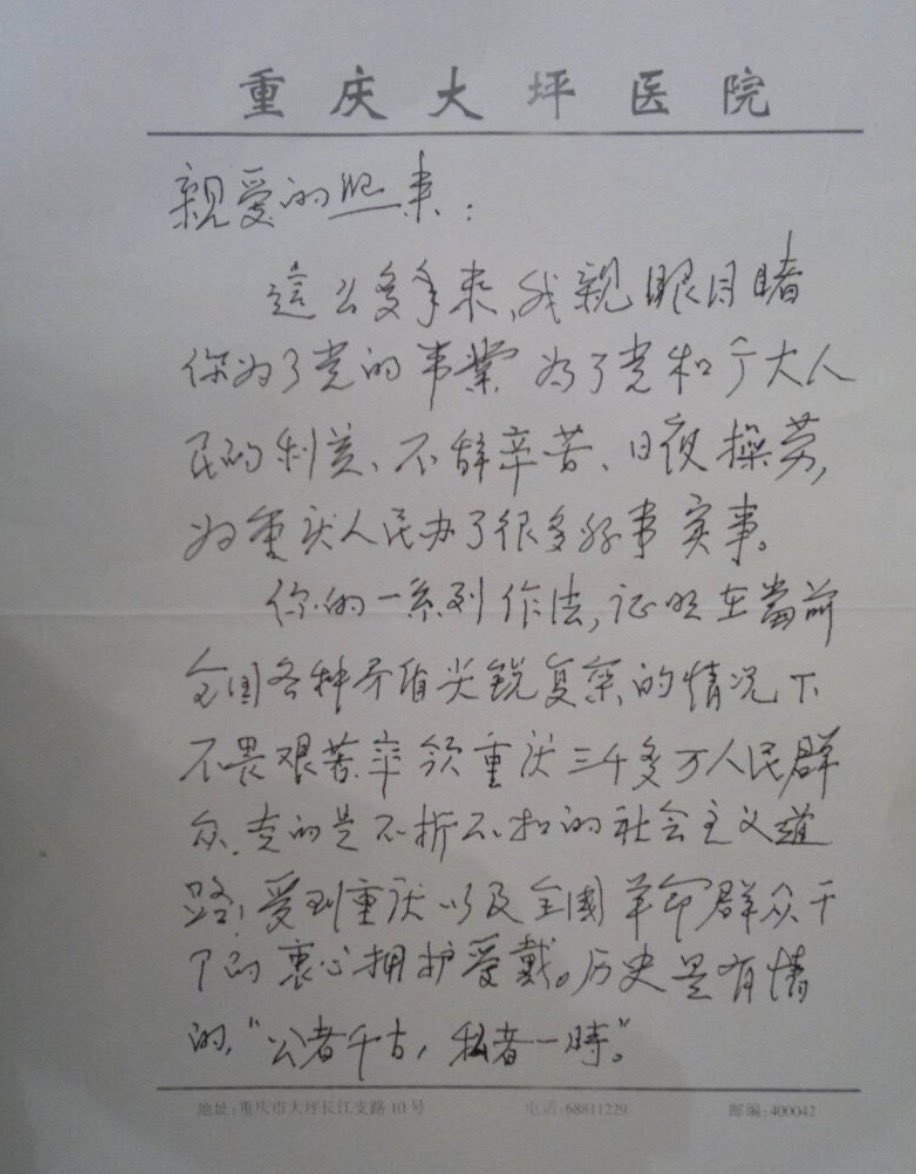 重庆大坪医院
親爱的熙来：
這么多年来，我親眼目睹
你为了党的事業 为了党和广大人
民的利益、不辞辛苦、日夜操劳，
为重庆人民办了很多好事实事。
你的一系列作法，证明在當前
全国各种矛盾尖锐复杂的情况下
不畏艰苦率领重庆三千多万人民群
众，走的是不折不扣的社会主义道
路！受到重庆以及全國革命群众干
下的衷心拥护爱戴。历史是有情
的，“公者千古，私者一時”。
地址：重庆市大坪长江支路10号 电话：68811229 邮编：400042